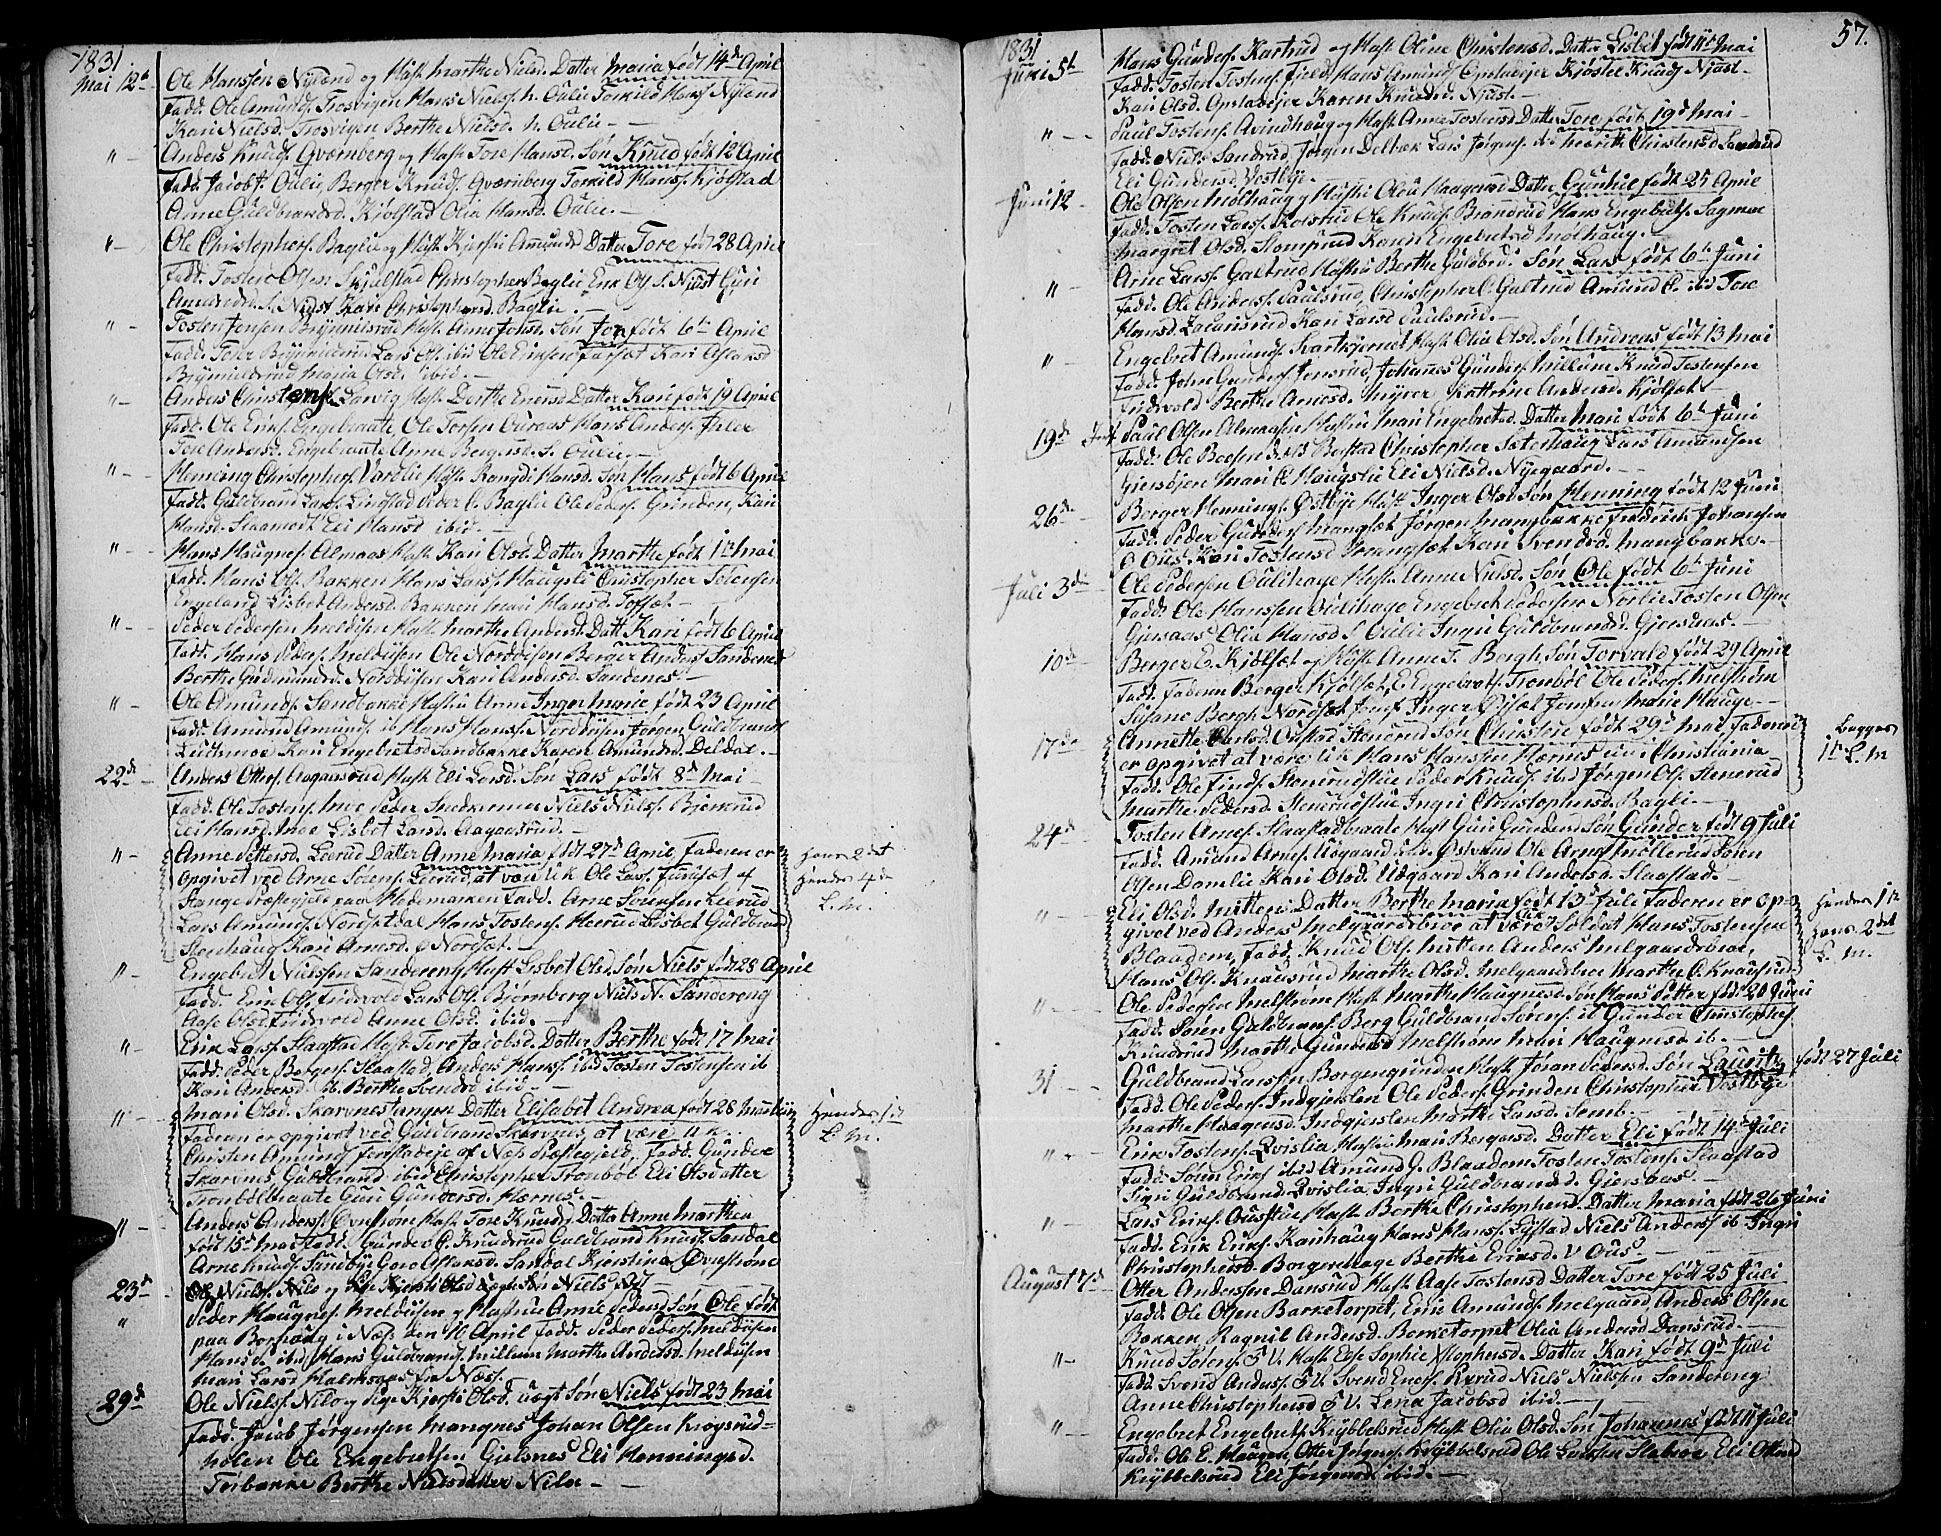 1831
Mai 12te Ole Hanssen Nyland og Hust. Marthe Nielsd. Datter Maria født 14de April
Fadd. Ole Amunds. Trosvigen Hans Nielss. N. Oulie Torkild Hanss. Nyland
Kari Nielsd. Trosvigen Berthe Nielsd. N. Oulie -
" - Anders Knuds. Qværnberg og Hust. Tore Hansd. Søn Knud født 12 April
Fadd. Jacob Oulie, Berger Knuds. Qværnberg Torkild Hanss. Kjølstad
Anne Guldbrandsd. Kjølstad Olia Hansd. Oulie. -
" - Ole Christophers. Baglie og Hust. Kjersti Amundsd. Datter Tore født 28 April
Fadd. Tosten Olsen Skjulstad Christopher Baglie Erik Ols. S. Njust Guri
Amundsd. S. Njust Kari Christophersd. Baglie. -
" - Tosten Jensen Brynnilsrud Hust. Anne Johsd. Søn Jon født 6te April
Fadd. Peder Brynnilsrud Lars Ols. ibid Ole Eriksen Farsæt Kari Aslaksd.
Brynnildsrud Maria Olsd. ibid. -
" - Anders Christens. Larvig Hust. Dorthe Enersd. Datter Kari født 19 April
Fadd. Ole Eriks. Engebraate Ole Torsen Ouraas Hans Anders. Ihler
Tore Andersd. Engebraate Anne Bergersd. S. Oulie. -
" - Henning Christophers. Vardlie Hust. Rangdi Hansd. Søn Hans født 6 April
Fadd. Guldbrand Lars. Lingstad Peder C. Baglie Ole Peders. Grinden, Kari
Hansd. Staamodt Eli Hansd. ibid. -
" - Hans Haagness. Almaas Hust. Kari Olsd. Datter Marthe født 1te Mai
Fadd. Hans Ols. Bakken Hans Larss. Haugsli Christopher Sørensen
Engeland Lisbet Andersd. Bakken Mari Hansd. Toffsæt -
" - Peder Pedersen Meldiisen Hust. Marthe Andersd. Datt. Kari født 6 April
Fadd. Hans Peders. Meldiisen Ole Norddiisen Berger Anders. Sandenes
Berthe Gudmundsd. Norddiisen Kari Andersd. Sandenes. -
" - Ole Amundss. Sandbakke Hustru Anne Inger Marie født 23 April
Fadd. Amund Amunds. ib Hans Hanss. Norddiisen Jørgen Guldbrands.
Ludsmoe Kari Engebretsd. Sandbakke Karen Amundsd. Deldal. -
22de - Anders Otters. Aagaasrud Hust. Eli Larsd. Søn Lars født 8de Mai -
Fadd. Ole Tostens. Moe Peder Snedkermer Niels Nielss. Bjenerud
Eli Hansd. Moe Lisbet Larsd. Aagaasrud. -
" - Anne Pettersd. Leerud Datter Anne Maria født 27de April Faderen er
opgivet ved Arne Sørens. Leerud at være U.K. Ole Larss. Fusisæt af
Stange Præstegjeld paa Hedemarken Fadd. Arne Sørensen Leerud
Lars Amunds. Nordstdal Hans Tostens. Heerud Lisbet Guldbrandsd.
Steenhaug Kari Arnesd. S Nordsæt. -
Hans 2det
Hendes 4de
L. M.
" - Engebret Nielssen Sandereng Hust. Lisbet Olsd. Søn Niels født 28 April
Fadd. Erik Ols. Fridvold Lars Ols. Bjørnberg Niels N. Sandereng
Aase Olsd. Fridvold Anne Olsd. ibid. -
" - Erik Larss. Slaastad Hust. Tore Jacobsd. Datter Berthe født 17 Mai
Fadd. Peder Bergers. Slaastad, Anders Hanss. ibid Tosten Tostensen ib
Kari Andersd. ib. Berthe Svendsd. ibid -
" - Mari Olsd. Skarvnestangen Datter Elisabet Andrea født 28 Martii
Faderen er opgivet ved Guldbrand Skarvnes at være U.K.
Christen Amunds. Fergstadeje af Næs Præstegjeld, Fadd. Gunder
Skarvnes, Guldbrand ibid Christopher Trondbøl Eli Olsdatter
Trondbølbraate Guri Gundersd. Hærnes. -
Hendes 1te
L. M.
" - Anders Anders. Ovnstrøm Hust. Tore Knudsd. Datter Anne Marthea
født 15de Mai Fadd. Gunder C. Knudsrud Guldbrand Knuds. Sandal
Arne Knuds. Sandbye Goro Aslaksd. Sandal Kjerstine Ovnstrøm
23de Ole Nielss. Nilo og Pige Kjersti Olsd. uægte Søn Niels
" Peder Haagness. Meldiisen og Hustrue Anne Pedersd. Søn Ole født
paa Borhaug i Næs den 10 April Fadd. Peder Peders. Meldiisen
Hans P. ibid Hans Guldbrands. Millum Marthe Andersd. Meldiisen
Mari Larsd. Halmsaas fra Næs.
29de Ole Nielss. Nilo og Pige Kjersti Olsd. uægt. Søn Niels født 23 Mai
Fadd. Jacob Jørgensen Mangnes Johan Olsen Krogsrud-
holen Ole Engebretsen Gjelsnes Eli Henningsd.
Torbakke Berthe Nielsdatter Nilo -
57.
1831
Juni 5te Hans Gunders. Kastrud og Hust. Oline Christensd. Datter Lisbet født 11te Mai
Fadd. Tosten Tostens. Field, Hans Amunds. Opstadejer Kjøstel Knuds. Njust -
Kari Olsd. Opstadejer Karen Knudsd. Njust. -
" - Paul Tostens. Avindhaug og Hust. Anne Tostensd. Datter Tore født 19de Mai -
Fadd. Niels Sandrud, Jørgen Delbæk Lars Jørgens. ib Henrik Christensd. Sandrud
Eli Gundersd. Vestbye. -
Juni 12 - Ole Olsen Molhaug og Hustru Olea Haagensd. Datter Gunhil født 25 April
Fadd. Tosten Larss. Kolstad Ole Knuds. Brandrud Hans Engebrets. Sagmoe
Margret Olsd. Stomsrud Karen Engebretsd. Molhaug. -
" Arne Larss. Galtrud Hustru Berthe Guldbrds. Søn Lars født 6te Juni
Fadd. Ole Anderss. Paulsrud, Christopher C. Galtrud Amund C. ibid Tore
Hansd. Zacarisrud Kari Larsd. Paulsrud. -
" Engebret Amunds. Svartkjernet Hust. Olia Olsd. Søn Andreas født 13 Mai
Fadd. John Gunders. Jensrud, Johannes Gunders. Millum Knud Tostensen
Fridvold Berthe Arnesd. Myrer Kathrine Andersd. Kjølsæt -
19de Paul Olsen Almaasen Hustru Mari Engebretsd. Datter Mari født 6te Juni
Fadd. Ole Boesen S. Berstad Christopher Saterhaug Lars Amundsen
Gjersøjen Mari C. Haugslie Eli Nielsd. Nyegaard. -
26de - Berger Hennings. Østbye Hust. Inger Olsd. Søn Henning født 12 Juni
Fadd. Peder Gunders. Mangsæt Jørgen Mangbakke Fredrik Johansen
O Ous. Kari Tostensd. Mangsæt Kari Svendsd. Mangbakke. -
Juli 3de - Ole Pedersen Oulihage Hust. Anne Nielsd. Søn Ole født 6te Juni
Fadd. Ole Hanssen Oulihage Engebret Pedersen Norlie Tosten Olsen
Gjersaas Olia Hansd. S Oulie Ingri Guldbrandsd. Gjersaas. -
10de Berger E. Kjølsæt og Hust. Anne F. Bergh Søn Torvald født 29 April
Fadd. Faderen Berger Kjølsæt, E. Engebrets. Trondbøl Ole Peders. Melstrøm
Susane Bergh Nordsæt Jomf. Inger Opsæt Jomfrue Marie Hauge. -
17de Annette Olsd. Oustad Stenerud Søn Christen født 29de Mai, Faderen
er opgivet at være U.K. Hans Hanssen Hærnes nu i Christiania
Fadd. Ole Finds. Stenerudstue Peder Knuds. ibid Jørgen Ols. Stenerud
Marthe Pedersd. Stenerudstue Ingri Christophersd. Bagli. -
Begges
1te L. M
24de Tosten Arnes. Slaastadbraate Hust. Guri Gundersd. Søn Gunder født 9 Juli
Fadd. Amund Arnes. Udgaard Lars Østbye Ole Arnes. Møllerud Søren
Olsen Damlie Kari Olsd. Udgaard Kari Andersd. Slaastad. -
" - Eli Olsd. Mitten Datter Berthe Maria født 13de Juli Faderen er op-
givet ved Anders Melgaardsbroe at være U.K. Soldat Hans Tostensen
Blaadem, Fadd. Knud Ols. Mitten Anders Melgaardsbroe,
Hans Ols. Knausrud Marthe Olsd. Melgaardsbroe Marthe O. Knausrud -
Hendes 1te
Hans 2det
L. M.
" - Ole Pedersen Melstrøm Hust. Marthe Haagnesd. Søn Hans Petter født 20 Juni
Fadd. Søren Guldbrands. Berg Guldbrand Sørens. ib Gunder Christophers.
Knudsrud Marthe Gundersd. Melstrøm Mari Haagnesd. ib. -
31 - Guldbrand Larssen Borgengrinden Hust. Jøran Pedersd. Søn Lauritz født 27 Juli
Fadd. Ole Peders. Indgjerslen Ole Peders. Grinden Christopher Vestbye
Marthe Haagensd. Indgjerslen Marthe Larsd. Semb. -
" - Erik Tostens. Qvislia Hustru Mari Bergersd. Datter Eli født 14de Juli
Fadd. Søren Eriks. ibid Amund G. Blaadem Tosten Tostens. Slaastad
Sigri Guldbrandsd. Qvislia, Ingri Guldbrandsd. Gjersaas. -
" - Lars Eriks. Ousstue Hust. Berthe Christophersd. Datter Maria født 26 Juni
Fadd. Erik Eriks. Kanhaug Hans Hans. Lystad Niels Anders. ib Ingri
Christophersd. Borgenhage Berthe Eriksd. V Ous. -
August 7de Otter Anderssen Dansrud Hust. Aase Tostensd. Datter Tore født 25 Juli
Fadd. Ole Olsen Barketorpet, Erik Amunds. Melgaard, Anders Olsen
Bakken Ragnil Andersd. Berketorpet Olia Andersd. Dansrud. -
" - Knud Sørens. S V. Hust. Else Sophie Xtophersd. Datter Kari født 9de Juli
Fadd. Svend Anders. S V. Svend Eners. Ryrud Niels Nielsen Sandereng
Anne Christophersd. S V. Lena Jacobsd. ibid. -
" - Engebret Engebrets. Krybbelsrud Hust. Olia Olsd. Søn Johannes født 11 Juli
Fadd. Ole E. Haugen, Otter Jørgens. Krybbelsrud Ole Larssen Slabroe Eli Ottersd.
Krybbelsrud Eli Jørgensd. ibid. -